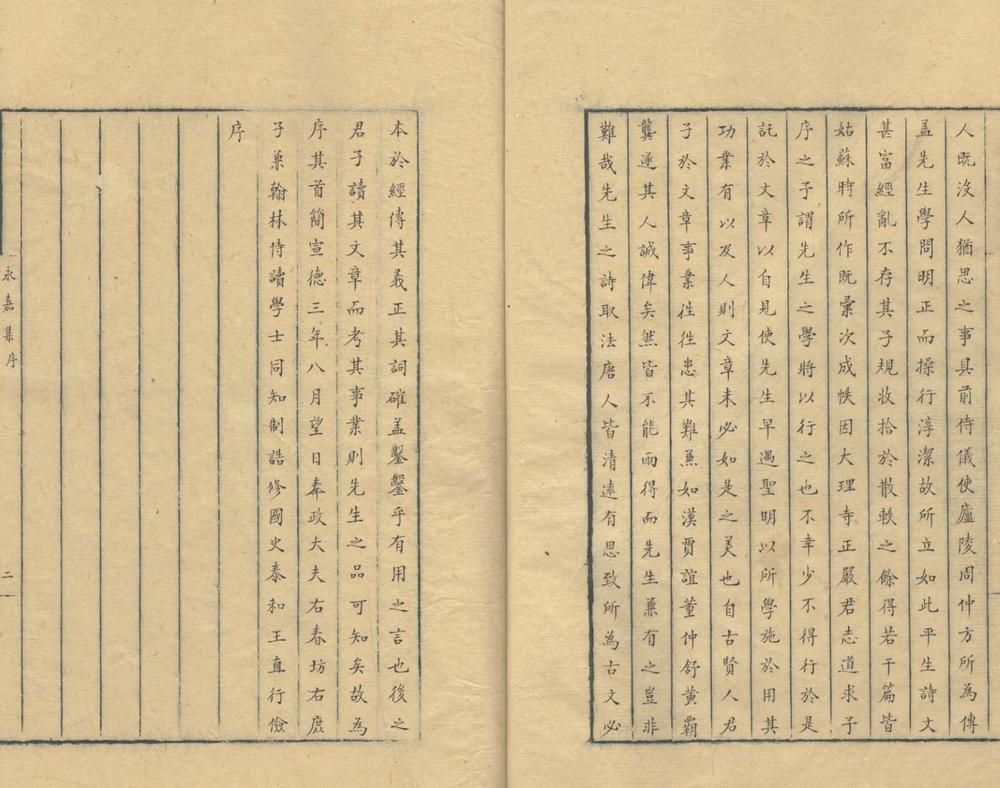 人既沒人猶思之事具前侍儀使廬陵周仲方所為傳
盖先生學問明正而操行淳潔故所立如此平生詩文
甚富經亂不存其子規收拾於散軼之餘得若干篇皆
姑蘇時所作既彚次成帙因大理寺正嚴君志道求予
序之予謂先生之學將以行之也不幸少不得行於是
託於文章以自見使先生早遇聖明以所學施於用其
功業有以及人則文章未必如是之美也自古賢人君
子於文章事業徃徃患其難兼如漢賈誼董仲舒黄霸
龔遂其人誠偉矣然皆不能兩得而先生兼有之豈非
難哉先生之詩取法唐人皆清遠有思致所為古文必
本於經傳其義正其詞確盖鑿鑿乎有用之言也後之
君子讀其文章而考其事業則先生之品可知矣故為
序其首簡宣德三年八月望日奉政大夫右春坊右庶
子兼翰林侍讀學士同知制誥修國史泰和王直行儉
序
永嘉集序
二